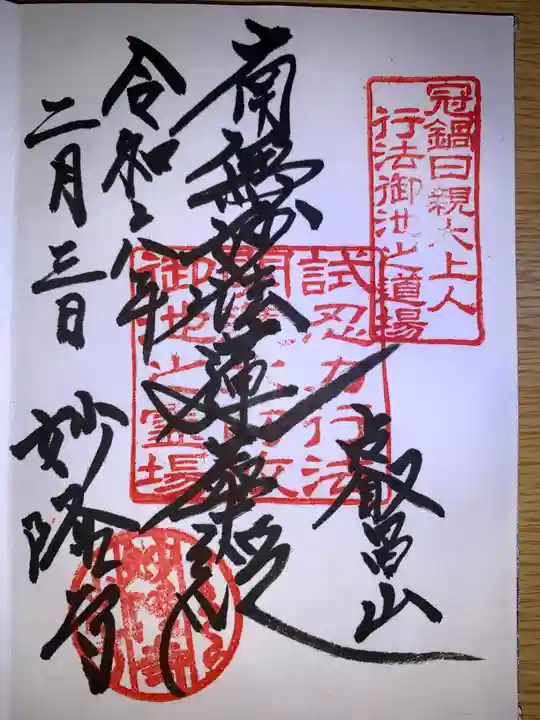 冠鍋日親大上人
行法御池之道場
叡昌山
南無妙法蓮華経
試忍力行法
御池之霊場
令和六年
二月三日
妙隆寺